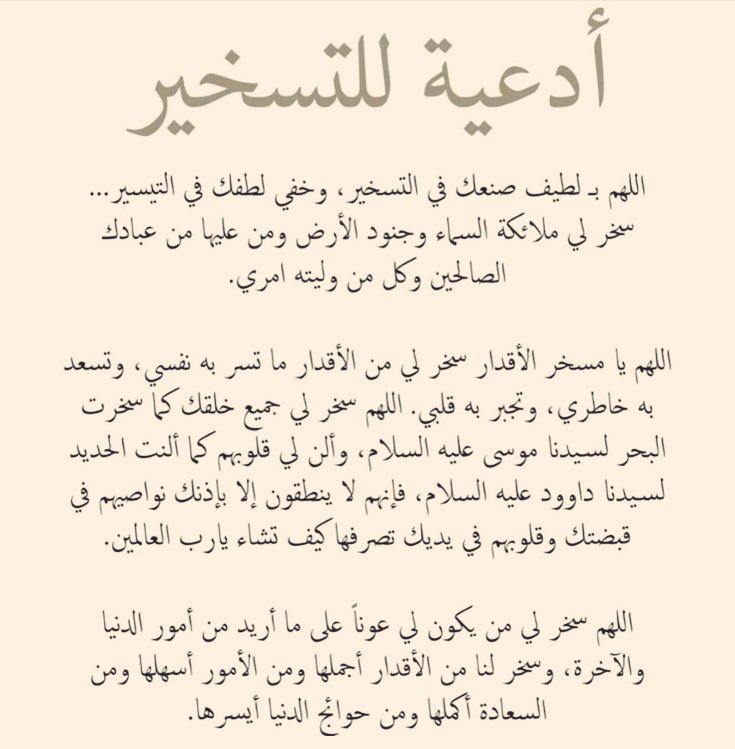 أدعية للتسخير
اللهم بـ لطيف صنعك في التسخير، وخفي لطفك في التيسير...
سخر لي ملائكة السماء وجنود الأرض ومن عليها من عبادك
الصالحين وكل من وليته امري.
اللهم يا مسخر الأقدار سخر لي من الأقدار ما تسر به نفسي، وتسعد
به خاطري، وتجبر به قلبي. اللهم سخر لي جميع خلقك كما سخرت
البحر لسيدنا موسى عليه السلام، وألن لي قلوبهم كما ألنت الحديد
لسيدنا داوود عليه السلام، فإنهم لا ينطقون إلا بإذنك نواصيهم في
قبضتك وقلوبهم في يديك تصرفها كيف تشاء يارب العالمين.
اللهم سخر لي من يكون لي عوناً على ما أريد من أمور الدنيا
والآخرة، وسخر لنا من الأقدار أجملها ومن الأمور أسهلها ومن
السعادة أكملها ومن حوائج الدنيا أيسرها.